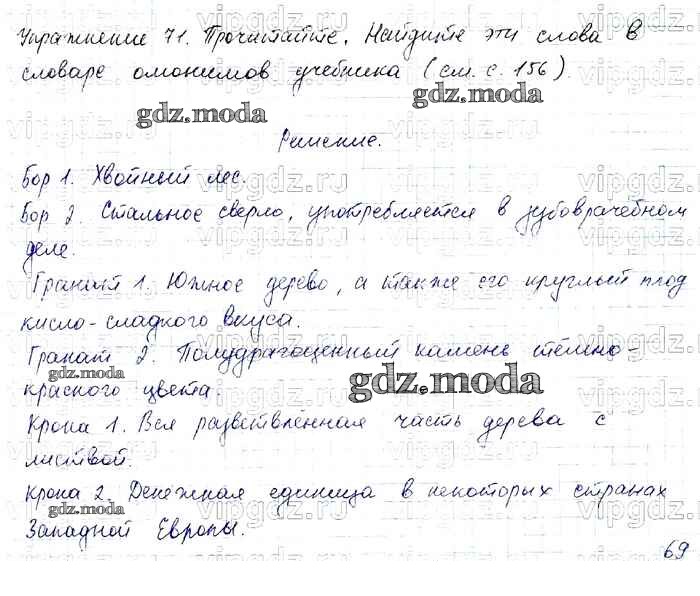 Упражнение 71. Прочитайте. Найдите эти слова в
словаре омонимов учебника (см. с. 156).
gdz.moda
gdz.moda
Решение.
Бор 1. Хвойный лес.
Бор 2. Стальное сверло, употребляется в зубоврачебном
деле.
Гранат 1. Южное дерево, а также его круглый плод
кисло-сладкого вкуса.
Гранат 2. Полудрагоценный камень тёмно-
gdz.moda
красного цвета.
gdz.moda
Крона 1. Вся разветвлённая часть дерева с
листвой.
gdz.moda
Крона 2. Денежная единица в некоторых странах
gdz.moda
Западной Европы.
69
vipgdz.ru